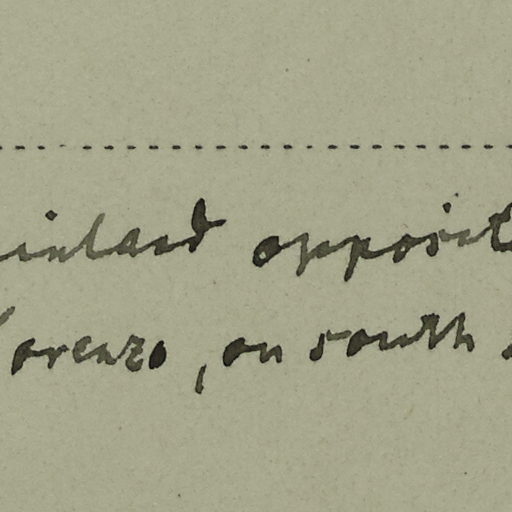 ainland opposit
Lorenzo, on south